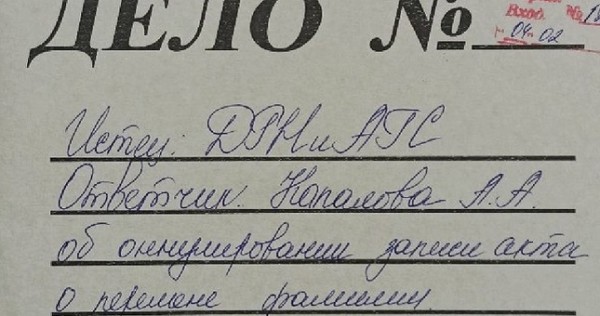 ДЕЛО №
Вход. №
04 02
Истец: ДРНиАГС
Ответчик Капалова А.А.
об аннулировании записи акта
о перемене фамилии